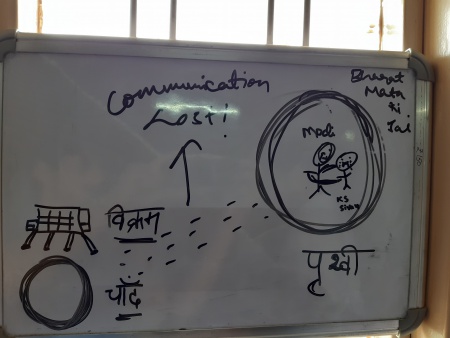 Communication
Lost!
Bharat
Mata
Ki
Jai
Modi
KS
Sivan
विक्रम
चाँद
पृथ्वी